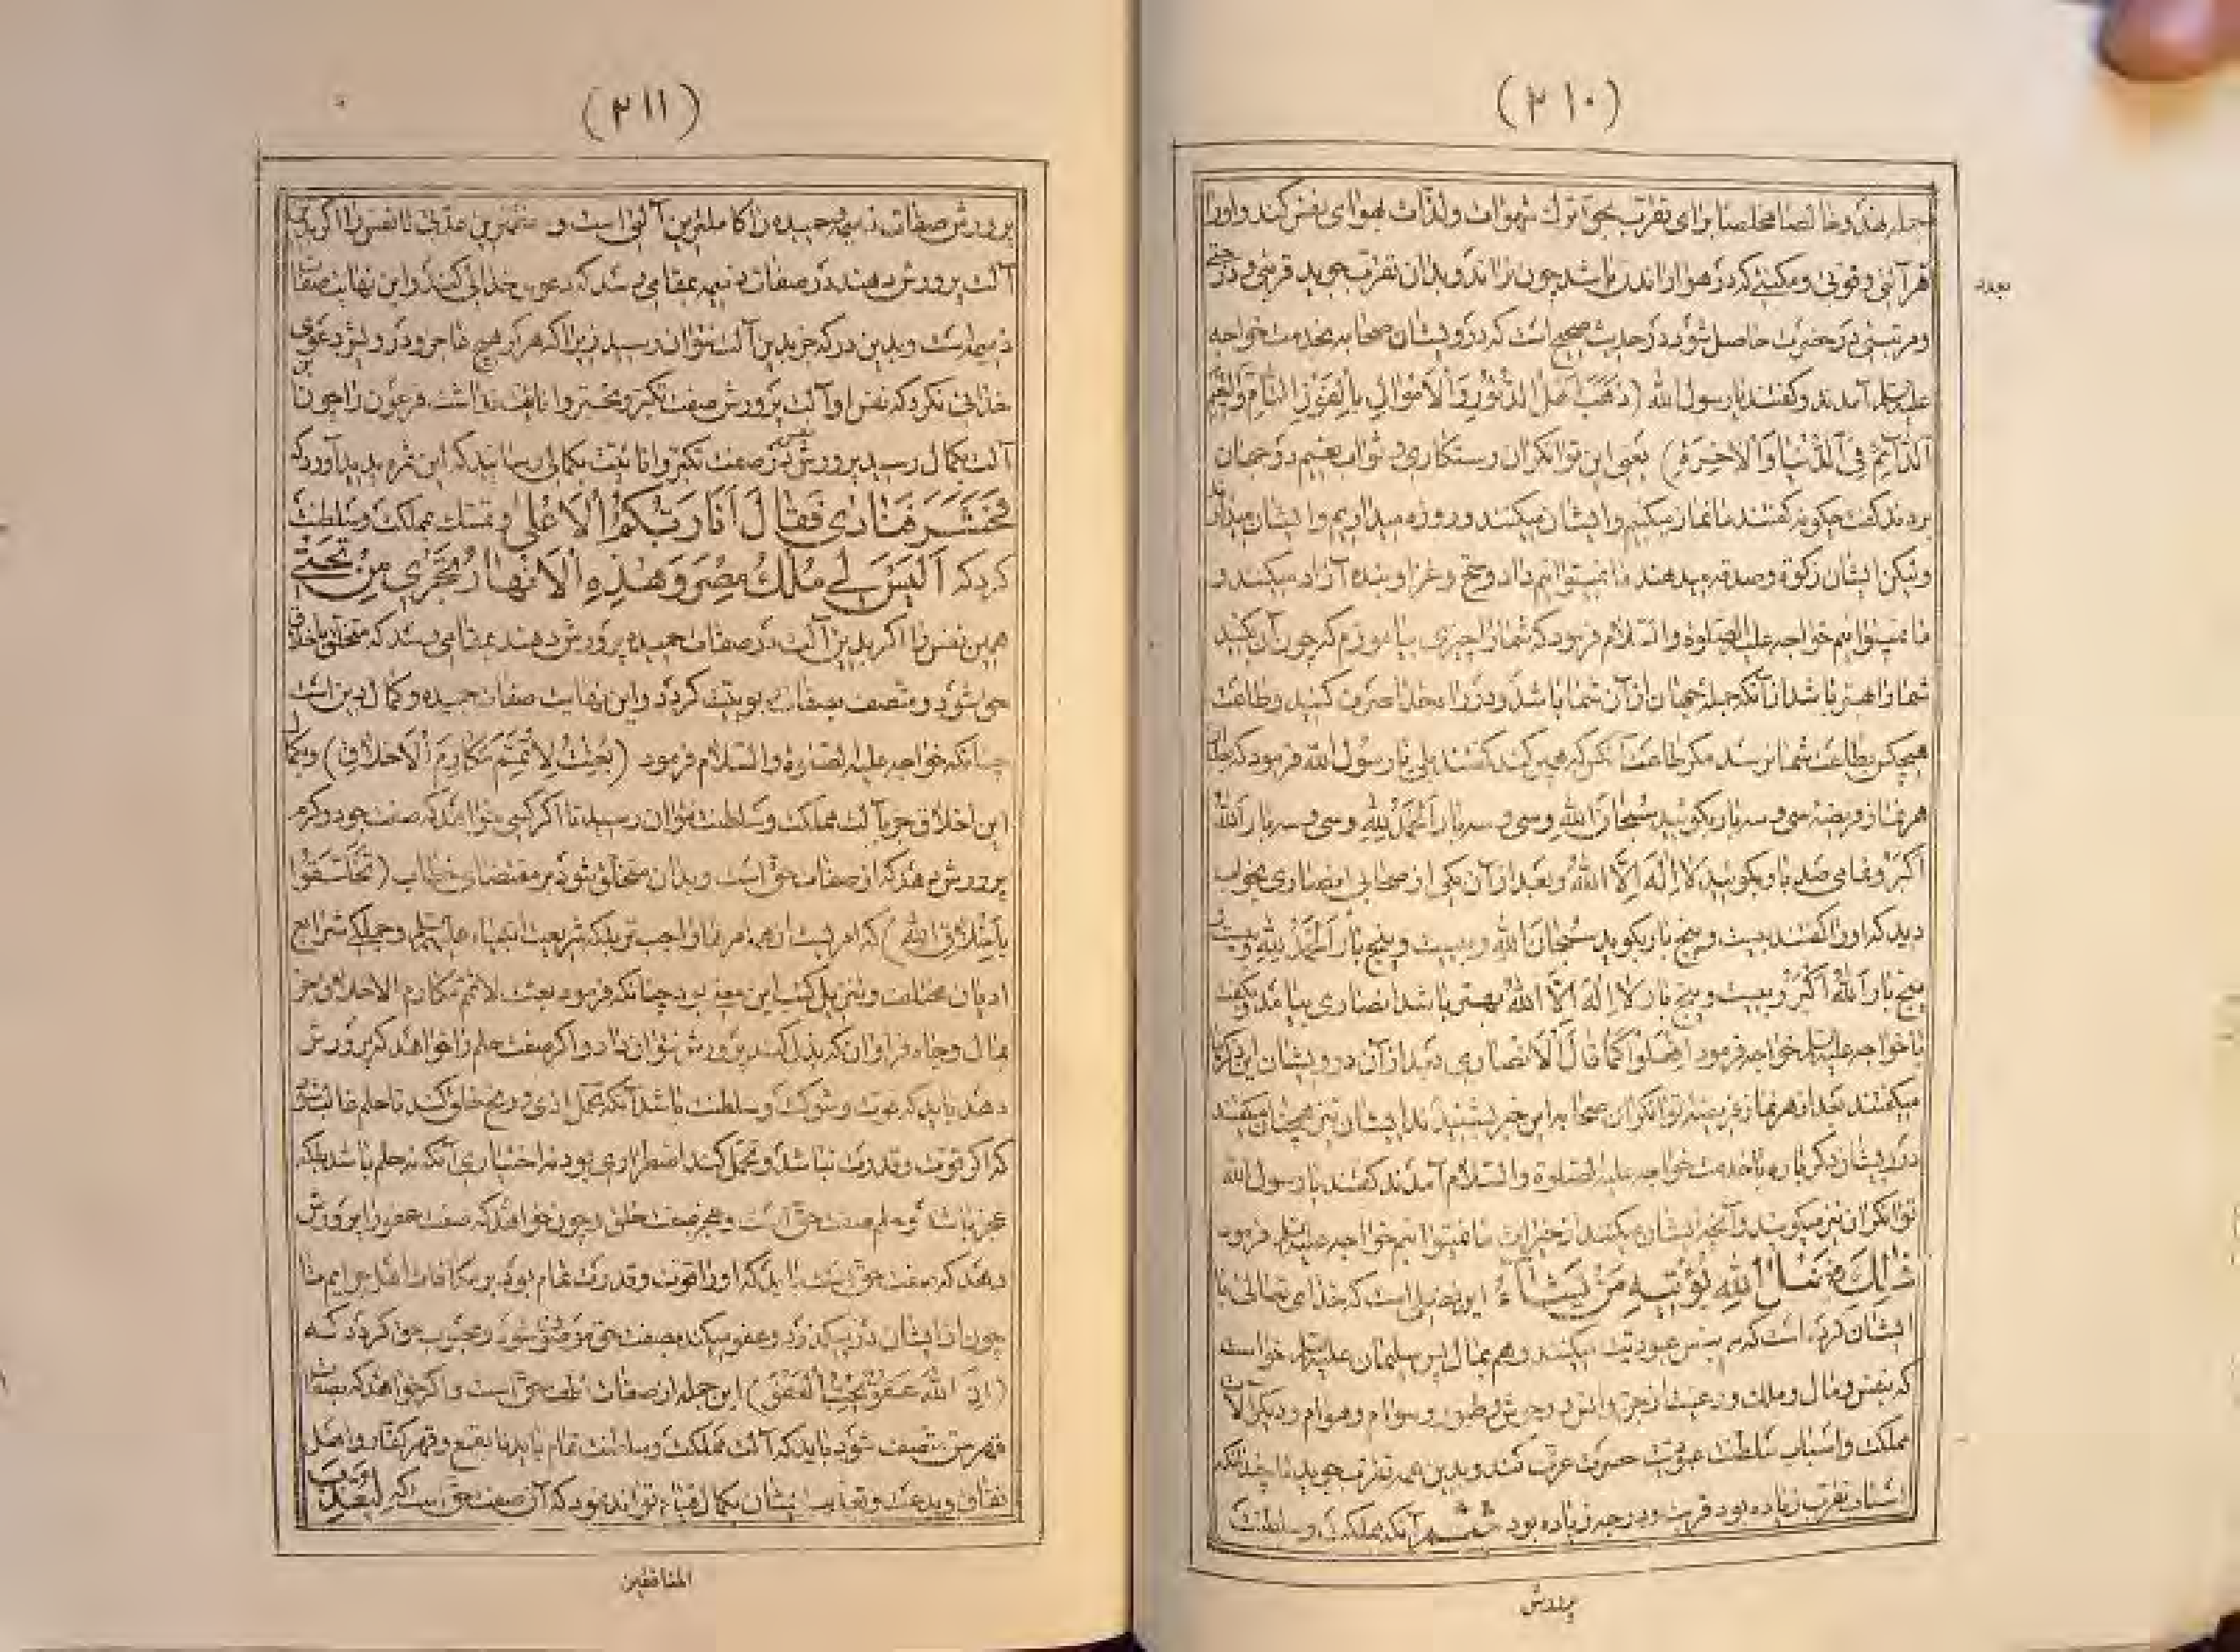 (۲۱۰)
نهد و خالصا مخلصا برای تقرب بحق ترک شهوات و لذات بهوای نفس کند و او را
هر آنی و قوتی و مکنتی که در هوا راندن باشد چون نراند و بدان تقرب جوید قربتی و درجتی
و مرتبتی در حضرت حاصل شود در حدیث صحیح است که درویشان صحابه بخدمت خواجه
علیه السلام آمدند و گفتند یا رسول الله (ذَهَبَ اَهْلُ الدُّثُورِ وَالْاَمْوَالِ بِالْفَوْزِ التَّامِّ وَالنَّعِيمِ
الدَّائِمِ فِي الدُّنْيَا وَالْاٰخِرَةِ) یعنی این توانگران رستکاری و ثواب نعیم دو جهان
بردند گفت چگونه گفتند ما نماز میکنیم و ایشان میکنند و روزه میداریم و ایشان میدارند
ولیکن ایشان زکوة و صدقه میدهند ما نمیتوانیم داد و حج و غزا و بنده آزاد میکنند و
ما نمیتوانیم خواجه علیه الصلوة والسلام فرمود که شما را چیزی بیاموزم که چون آن بکنید
شما را بهتر باشد از آنکه جمله جهان از آن شما باشد و در راه خدا صرف کنید و طاعت
هیچکس بطاعت شما نرسد مگر طاعت آنکس که همین کند گفتند بلی یا رسول الله فرمود که
هر نماز فریضه سی و سه بار بگوئید سُبْحَانَ اللهِ و سی و سه بار اَلْحَمْدُ لِلّٰهِ و سی و سه بار اَللهُ
اَكْبَرُ و تمامی صد بار بگوئید لَا اِلٰهَ اِلَّا اللهُ و بعد از آن یکی از صحابی انصاری بخواب
دید که او را گفتند بیست و پنج بار بگوید سُبْحَانَ اللهِ و بیست و پنج بار اَلْحَمْدُ لِلّٰهِ و بیست و
پنج بار اَللهُ اَكْبَرُ و بیست و پنج بار لَا اِلٰهَ اِلَّا اللهُ بهتر باشد انصاری بیامد
با خواجه علیه السلام خواجه فرمود اِفْعَلُوا كَمَا قَالَ الْاَنْصَارِي بعد از آن درویشان این ذکرها
میگفتند بعد از هر نماز فریضه توانگران صحابه این خبر بشنیدند ایشان نیز همچنان میگفتند
درویشان دگر باره بخدمت خواجه علیه الصلوة والسلام آمدند گفتند یا رسول الله
توانگران نیز میگویند و آنچه ایشان میکنند از خیرات ما نمیتوانیم خواجه علیه السلام فرمود
ذٰلِكَ فَضْلُ اللهِ يُؤْتِيهِ مَنْ يَشَاءُ این فضلی است که خدای تعالی با
ایشان کرده است که بنفس عبودیت میکنند و هم بمال پس سلیمان علیه السلام خواست
که بنفس و مال و ملک و رعیت از جن و انس و وحوش و طیور و سوام و هوام و دیگر آلات
مملکت و اسباب سلطنت عبودیت حضرت عزت کند و بدین همه تقرب جوید تا چندانکه
اسباب تقرب زیاده بود قربت و درجه زیاده بود ششم آنکه مملکت و سلطنت
پرورش
(۲۱۱)
پرورش صفات ذمیمه و حمیده را کاملترین آلتی است و عدتی تا نفس را اگر بدین
آلت پرورش دهند در صفات ذمیمه بمقامی رسد که دعوی خدائی کند و این نهایت صفات
ذمیمه است و بدین درکه جز بدین آلت نتوان رسید زیرا که هرگز هیچ عاجز و درویش دعوی
خدائی نکرد که نفس او آلت پرورش صفت تکبر و تجبر و انانیت نداشت فرعون را چون این
آلت بکمال رسید پرورش صفت تکبر و انانیت بکمالی رسانید که این ثمره پدید آورد که
فَحَشَرَ فَنَادٰى فَقَالَ اَنَا رَبُّكُمُ الْاَعْلٰى و تمسک بمملکت و سلطنت
کرد که اَلَيْسَ لِي مُلْكُ مِصْرَ وَهٰذِهِ الْاَنْهَارُ تَجْرِي مِنْ تَحْتِي
همین نفس را اگر بدین آلت در صفات حمیده پرورش دهند بمقامی رسد که متخلق باخلاق
حق شود و متصف بصفات ربوبیت گردد و این نهایت صفات حمیده و کمال دین است
چنانکه خواجه علیه الصلوة والسلام فرمود (بُعِثْتُ لِاُتَمِّمَ مَكَارِمَ الْاَخْلَاقِ) و بکمال
این اخلاق جز بآلت مملکت و سلطنت نتوان رسید تا اگر کسی خواهد که صفت جود و کرم
پرورش دهد که از صفات حق است و بدان متخلق شود بر مقتضای خطاب (تَخَلَّقُوا
بِاَخْلَاقِ اللهِ) که امر است
ادیان مختلف و تنزیل کتب این معنی بود چنانکه فرمود بعثت لاتمم مکارم الاخلاق جز
بمال و جاه فراوان که بذل کند پرورش نتوان داد و اگر صفت حلم را خواهد که پرورش
دهد باید که قوت و شوکت و سلطنت باشد آنگه تحمل اذی و رنج خلق کند تا حلم غالب شود
که اگر قوت و قدرت نباشد و تحمل کند اضطراری بود نه اختیاری آنکه نه حلم باشد بلکه
عجز باشد و حلم صفت حق است و عجز صفت خلق و چون خواهد که صفت عفو را پرورش
دهد که صفت حق است باید که او را قوت و قدرت تمام بود بر مکافات اهل جرایم تا
چون از ایشان درمیگذرد و عفو میکند بصفت حق موصوف شود و محبوب حق گردد که
(اِنَّ اللهَ عَفُوٌّ يُحِبُّ الْعَفْوَ) این جمله از صفات لطف حق است و اگر خواهد که بصفات
قهر حق متصف شود باید که آلت مملکت و سلطنت تمام یابد تا بقمع و قهر کفار و اهل
نفاق و بدعت و تعذیب ایشان بکمال قیام تواند نمود که آن صفت حق است که لِيُعَذِّبَ
المنافقین